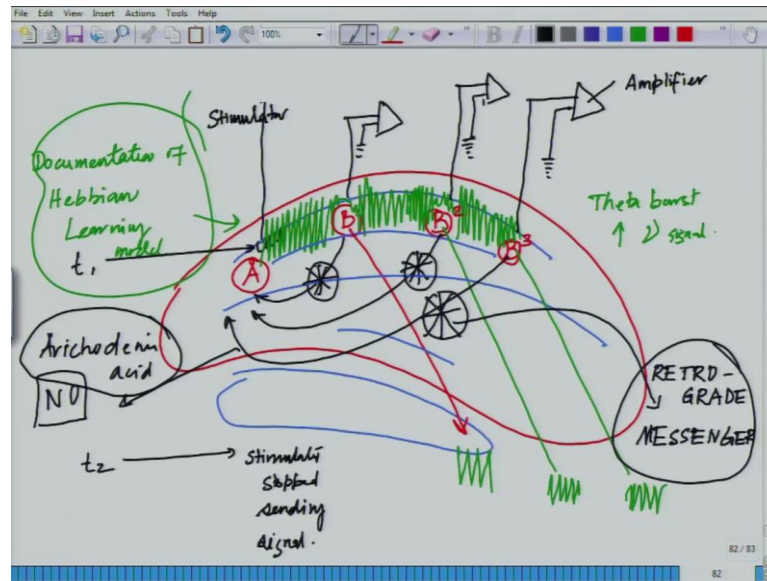 File Edit View Insert Actions Tools Help
100%
B I
Stimulator
Amplifier
Documentation of
Hebbian
Learning
model
Theta burst
↑ ν signal.
t₁
A
B
B²
B³
Arichodenic
acid
NO
RETRO-
GRADE
MESSENGER
t₂
Stimulati
stopped
sending
signal.
82 / 83
82